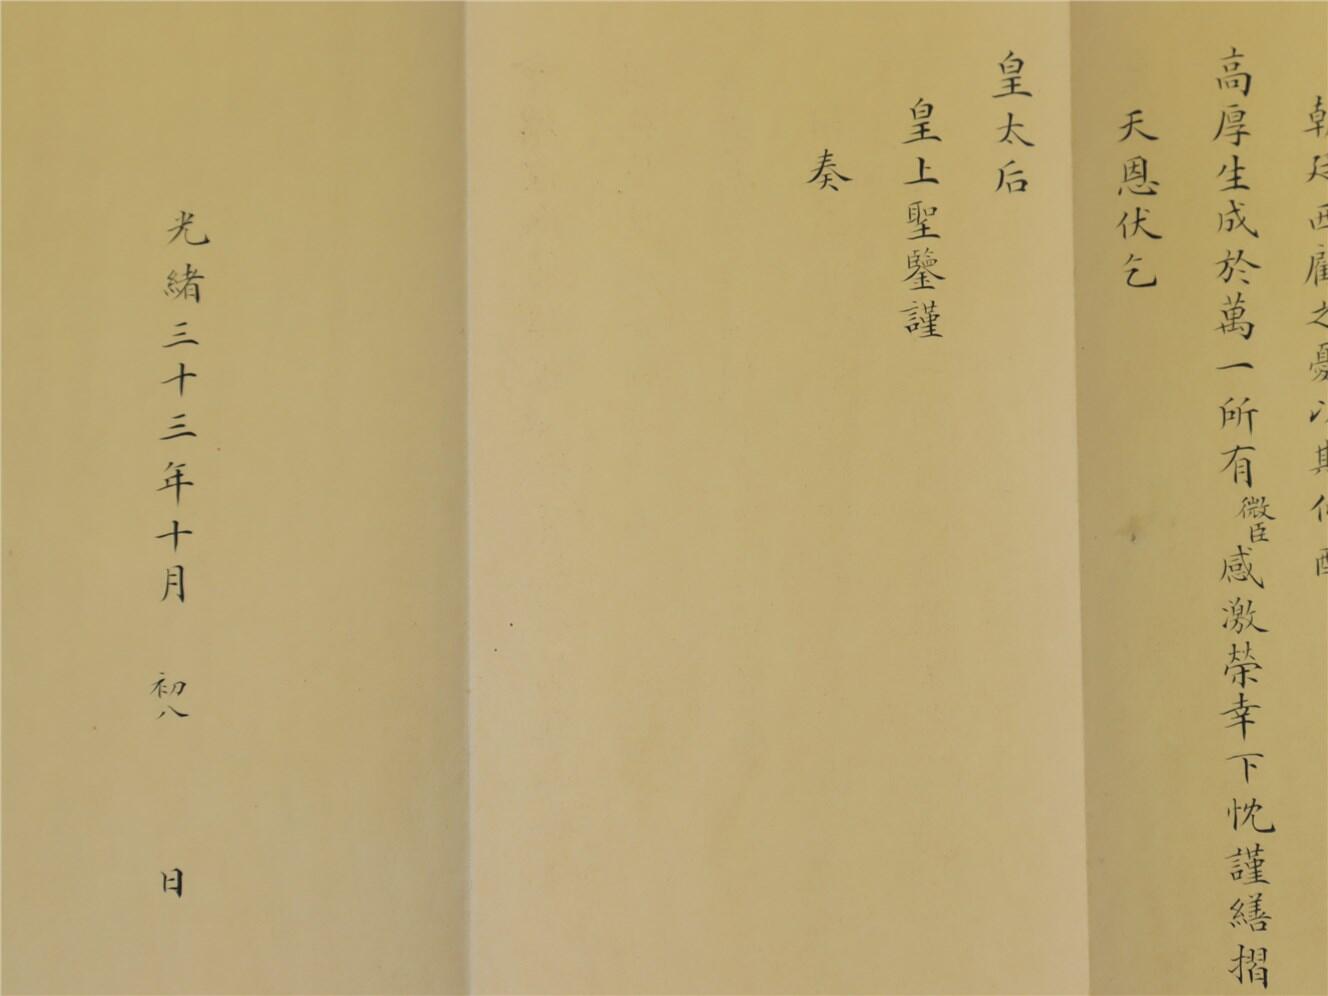 朝廷西顧之憂以期仰酬
高厚生成於萬一所有微臣感激榮幸下忱謹繕摺
天恩伏乞
皇太后
皇上聖鑒謹
奏
光緒三十三年十月初八日